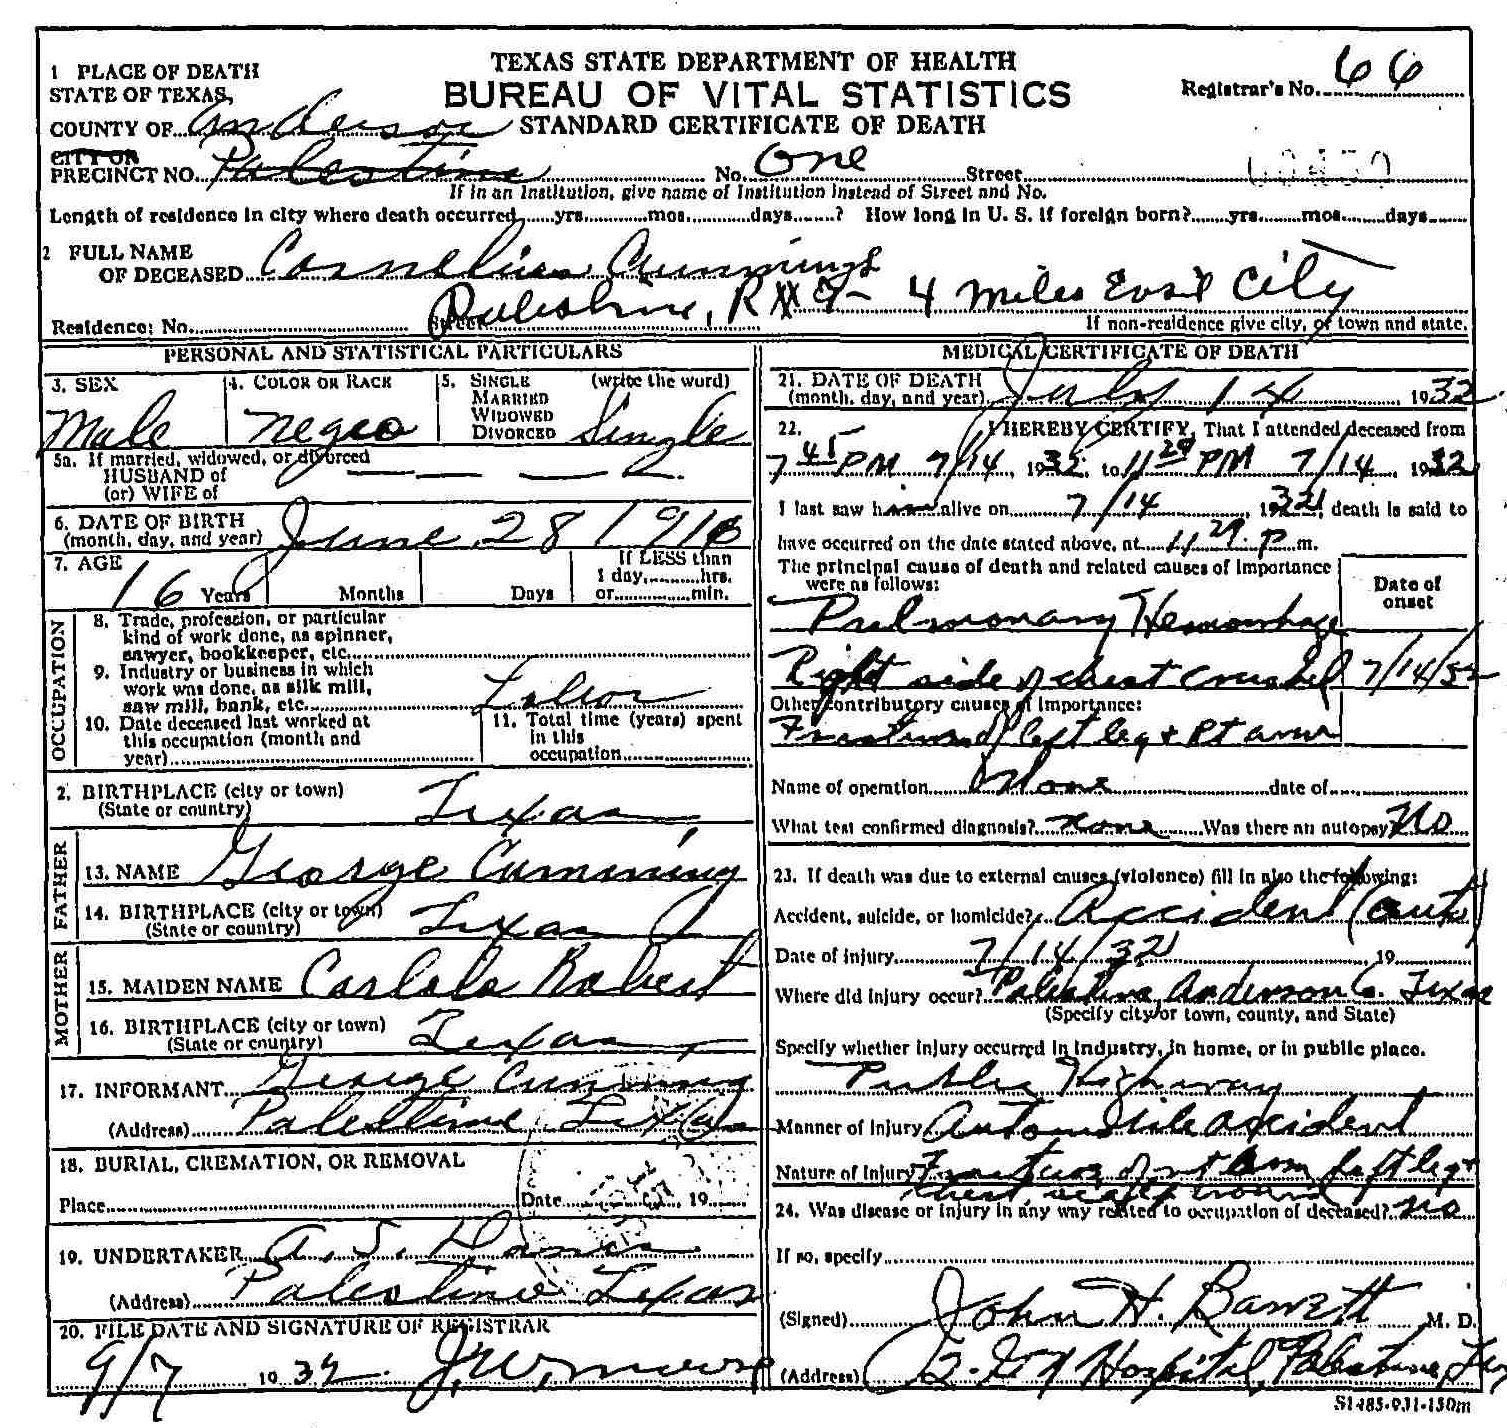 TEXAS STATE DEPARTMENT OF HEALTH
BUREAU OF VITAL STATISTICS
STANDARD CERTIFICATE OF DEATH
Registrar's No. 66
1 PLACE OF DEATH
STATE OF TEXAS,
COUNTY OF Anderson
CITY OR
PRECINCT NO. Palestine No. One Street
If in an Institution, give name of Institution instead of Street and No.
Length of residence in city where death occurred yrs. mos. days ? How long in U. S. if foreign born? yrs. mos. days
2 FULL NAME
OF DECEASED Cornelius Cummings
Residence: No. Street Palestine, R 4 Miles East City
If non-residence give city, or town and state.
PERSONAL AND STATISTICAL PARTICULARS
3. SEX 4. COLOR OR RACE 5. SINGLE (write the word)
MARRIED
WIDOWED
DIVORCED
Male Negro Single
5a. If married, widowed, or divorced
HUSBAND of
(or) WIFE of
6. DATE OF BIRTH
(month, day, and year) June 28 1916
7. AGE If LESS than
1 day, hrs.
16 Years Months Days or min.
OCCUPATION
8. Trade, profession, or particular
kind of work done, as spinner,
sawyer, bookkeeper, etc.
9. Industry or business in which
work was done, as silk mill,
saw mill, bank, etc. Labor
10. Date deceased last worked at
this occupation (month and
year)
11. Total time (years) spent
in this
occupation
2. BIRTHPLACE (city or town) Texas
(State or country)
FATHER
13. NAME George Cumming
14. BIRTHPLACE (city or town) Texas
(State or country)
MOTHER
15. MAIDEN NAME Robert
16. BIRTHPLACE (city or town) Texas
(State or country)
17. INFORMANT George Cumming
(Address) Palestine Texas
18. BURIAL, CREMATION, OR REMOVAL
Place Date 19
19. UNDERTAKER A. S.
(Address) Palestine Texas
20. FILE DATE AND SIGNATURE OF REGISTRAR
9/7 1932
MEDICAL CERTIFICATE OF DEATH
21. DATE OF DEATH
(month, day, and year) July 14 1932
22. I HEREBY CERTIFY, That I attended deceased from
7 45 PM 7/14, 1932 to 11 29 PM 7/14, 1932
I last saw him alive on 7/14, 1932, death is said to
have occurred on the date stated above, at 11 29 P m.
The principal cause of death and related causes of importance
were as follows:
Date of
onset
Pulmonary Hemorrhage
Right side of chest crushed 7/14/32
Other contributory causes of importance:
Fracture of left leg + Rt arm
Name of operation None date of
What test confirmed diagnosis? none Was there an autopsy? No
23. If death was due to external causes (violence) fill in also the following:
Accident, suicide, or homicide? Accident (auto)
Date of injury 7/14/32 19
Where did injury occur? Palestine, Anderson Co. Texas
(Specify city or town, county, and State)
Specify whether injury occurred in industry, in home, or in public place.
Public Highway
Manner of Injury Automobile accident
Nature of Injury Fracture of rt arm left leg +
chest, scalp wound
24. Was disease or injury in any way related to occupation of deceased? no
If so, specify
(Signed) John H. Barrett M. D.
(Address) Hospital, Palestine Tex
S1485-931-150m